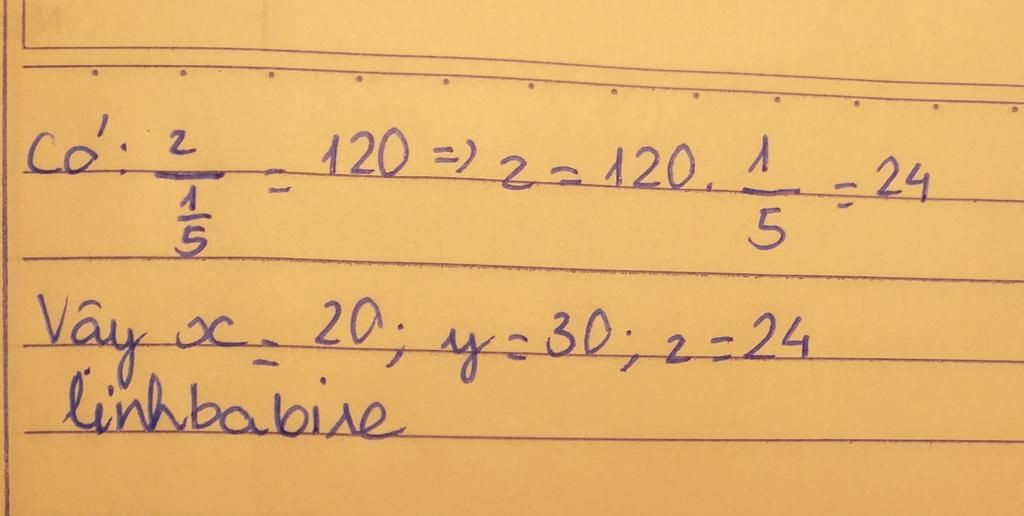 Có: z/(1/5) = 120 => z = 120. 1/5 = 24
Vây x = 20; y = 30; z = 24
linhbabire